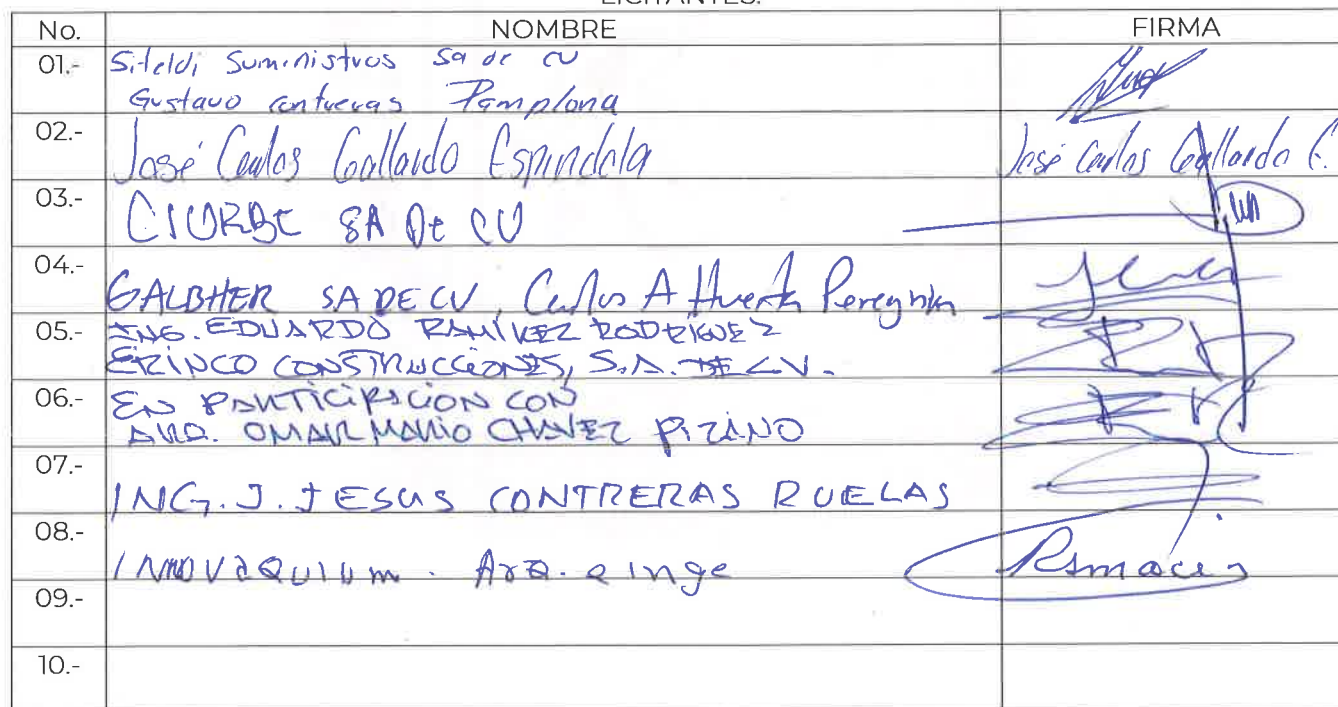 LICITANTES.
No. NOMBRE FIRMA
01.- Siteldi Suministros Sa de cv
Gustavo contreras Pamplona
02.- José Carlos Gallardo Espindola José Carlos Gallardo E.
03.- CIURBC SA De CV
04.- GALBHER SA DE CV, Carlos A Huerta Peregrina
05.- ING. EDUARDO RAMIREZ RODRIGUEZ
ERINCO CONSTRUCCIONES, S.A. DE C.V.
06.- EN PARTICIPACION CON
ARQ. OMAR MARIO CHAVEZ PIZANO
07.- ING. J. JESUS CONTRERAS RUELAS
08.- INNOVAQUIUM. Arq. e inge
09.-
10.-